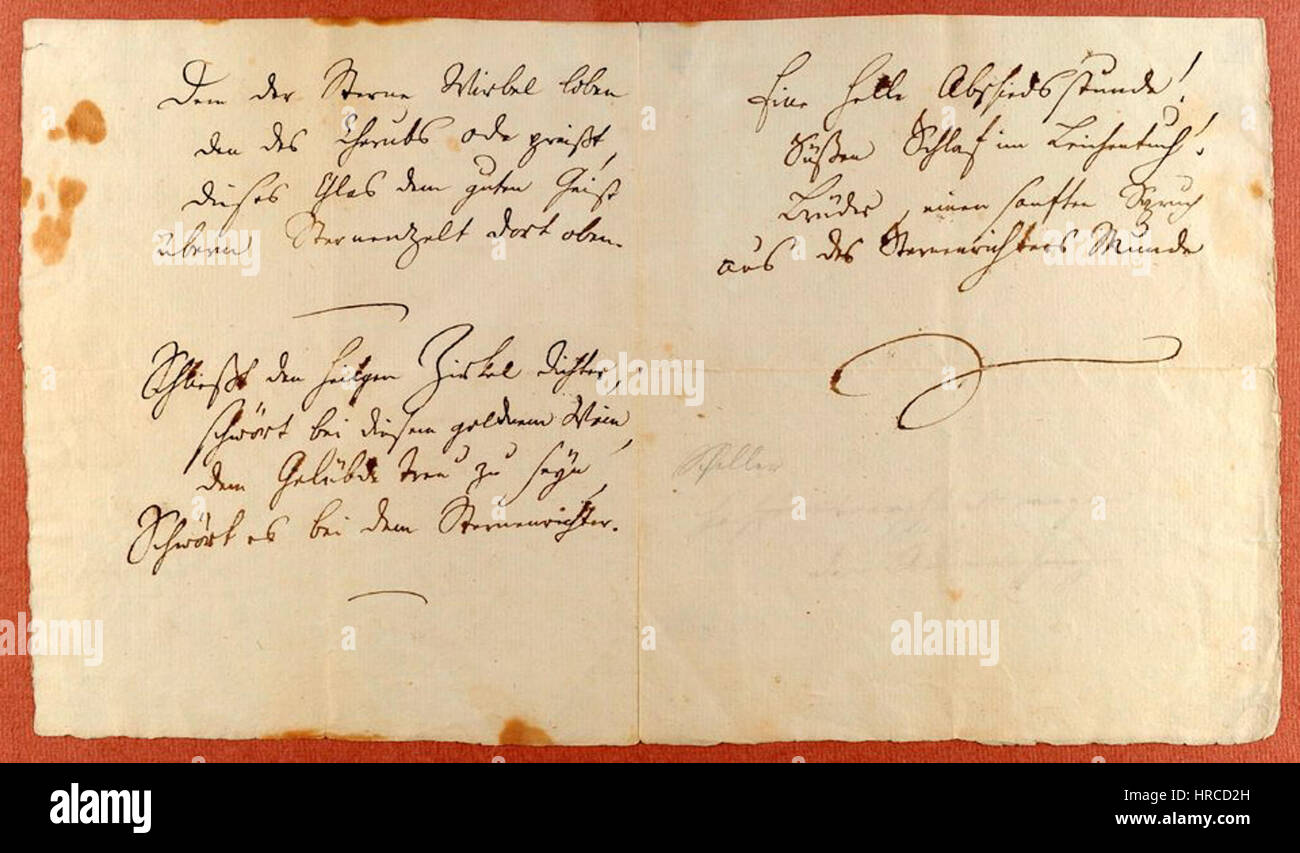 Dem der Sterne Wirbel loben
den des Cherubs Ode preißt,
dieses Glas dem guten Geist
überm Sternenzelt dort oben.
Schließt den heilgen Zirkel dichter,
schwört bei diesem goldnem Wein,
dem Gelübde treu zu seyn,
Schwört es bei dem Sternenrichter.
Eine helle Abschiedsstunde!
Süßen Schlaf im Leichentuch!
Brüder, einen sanften Spruch
aus des Sternenrichters Munde
alamy stock photo
a
a
a
a
alamy
Image ID: HRCD2H
www.alamy.com